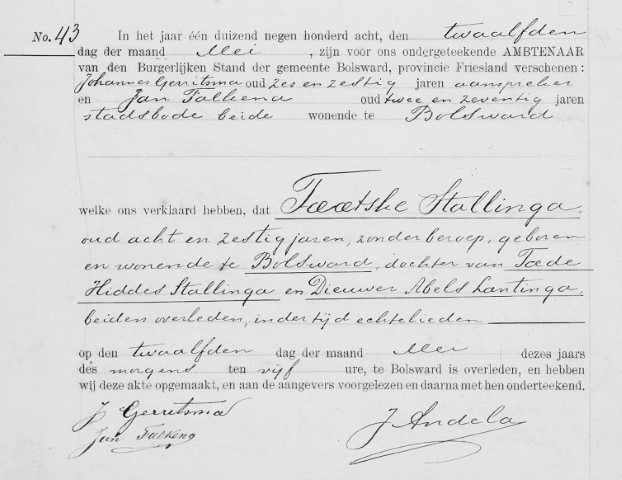 No. 43 In het jaar één duizend negen honderd acht, den twaalfden
dag der maand Mei, zijn voor ons ondergeteekende AMBTENAAR
van den Burgerlijken Stand der gemeente Bolsward, provincie Friesland verschenen:
Johannes Gerritsma oud zes en zestig jaren aanspreker
en Jan Falkena oud twee en zeventig jaren
stadsbode beide wonende te Bolsward
welke ons verklaard hebben, dat Taetske Stallinga,
oud acht en zestig jaren, zonder beroep, geboren
en wonende te Bolsward, dochter van Taede
Hiddes Stallinga en Dieuwer Abels Lantinga,
beiden overleden, in der tijd echtelieden
op den twaalfden dag der maand Mei dezes jaars
des morgens ten vijf ure, te Bolsward is overleden, en hebben
wij deze akte opgemaakt, en aan de aangevers voorgelezen en daarna met hen onderteekend.
J Gerritsma
Jan Falkena
J Andela